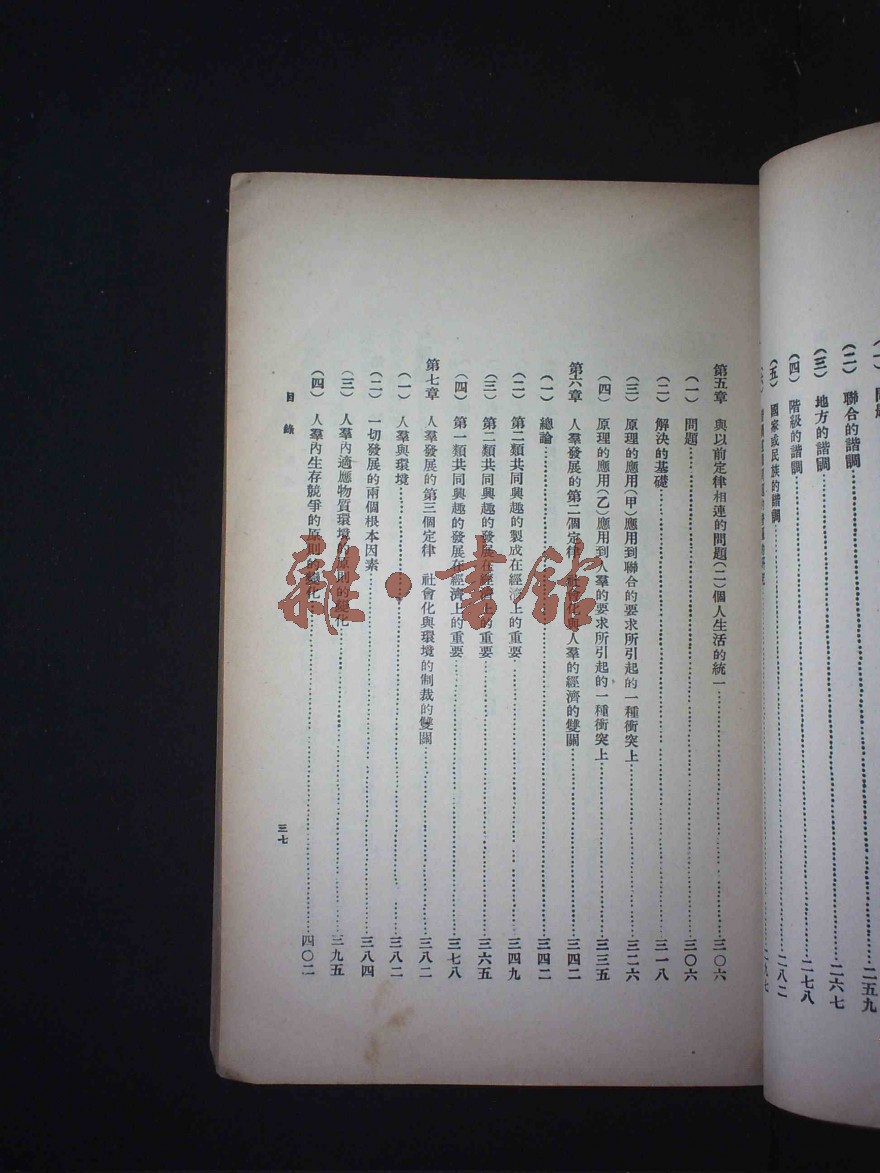 (二) 聯合的諧調……二六七
(三) 地方的諧調……二七八
(四) 階級的諧調……二七八
(五) 國家或民族的諧調……二八二
第五章 與以前定律相連的問題(二)個人生活的統一……三〇六
(一) 問題……三〇六
(二) 解決的基礎……三一八
(三) 原理的應用(甲)應用到聯合的要求所引起的一種衝突上……三二六
(四) 原理的應用(乙)應用到人羣的要求所引起的一種衝突上……三三五
第六章 人羣發展的第二個定律 社會化與人羣的經濟的雙關……三四二
(一) 總論……三四二
(二) 第二類共同興趣的製成在經濟上的重要……三四九
(三) 第二類共同興趣的發展在經濟上的重要……三六五
(四) 第一類共同興趣的發展在經濟上的重要……三七八
第七章 人羣發展的第三個定律 社會化與環境的制裁的雙關……三八二
(一) 人羣與環境……三八二
(二) 一切發展的兩個根本因素……三八四
(三) 人羣內適應物質環境的原則的變化……三九五
(四) 人羣內生存競爭的原則的變化……四〇二
目錄
三七
雜·書館